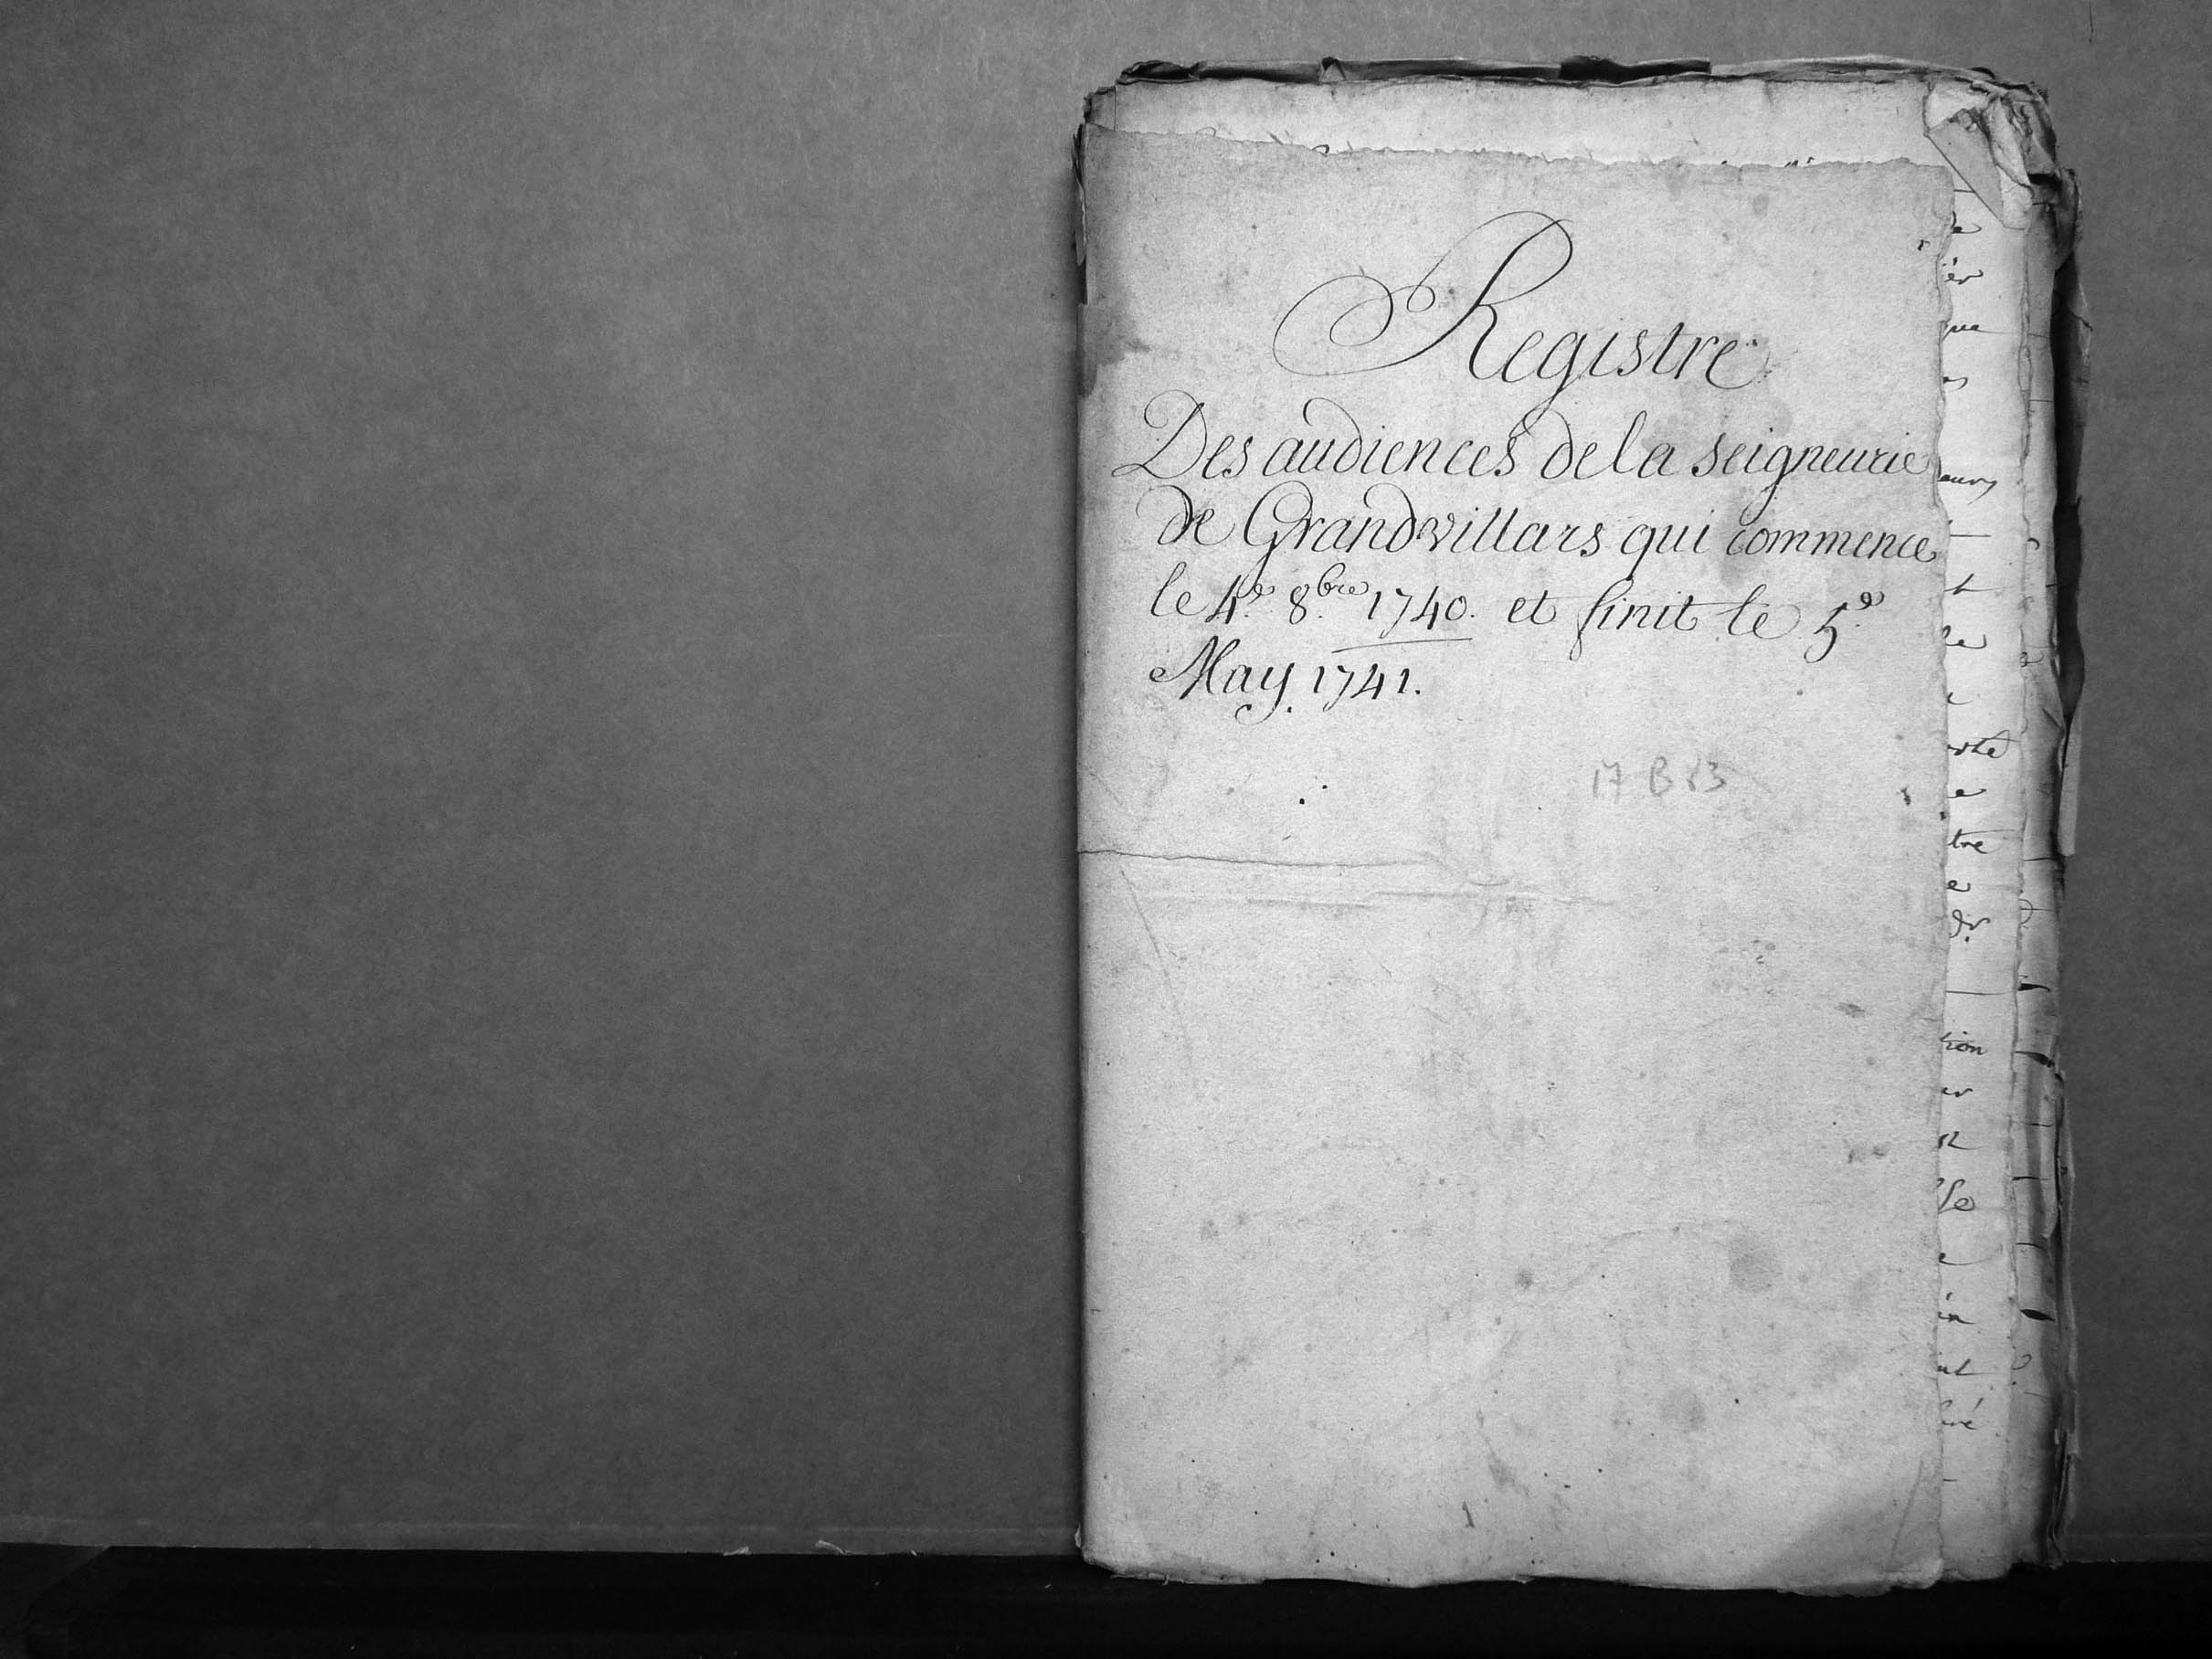 Registre
Des audiences de la seigneurie
de Grandvillars qui commence
le 4.e 8.bre 1740. et finit le 5.e
May. 1741.
17 B
1